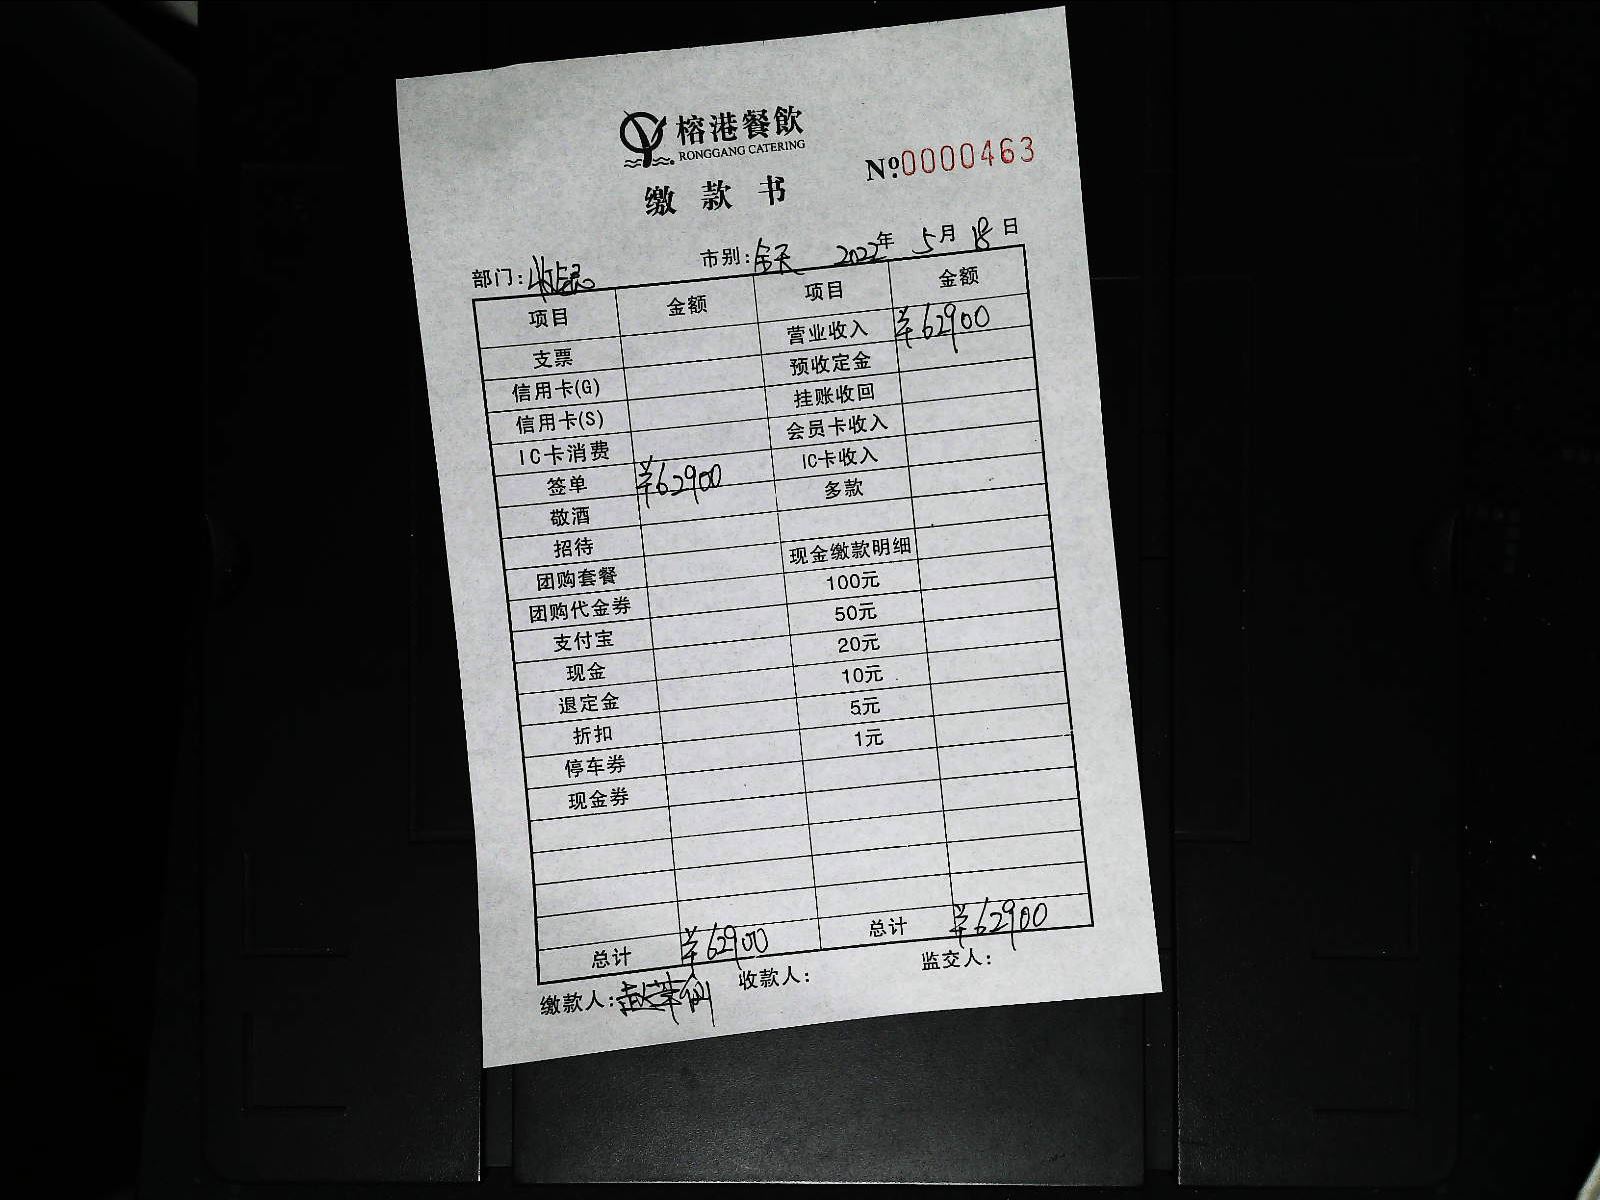 榕港餐飲
RONGGANG CATERING
№0000463
缴款书
部门: 市别:全天 2022年 5月 18日
项目 金额 项目 金额
支票 营业收入 ¥62900
信用卡(G) 预收定金
信用卡(S) 挂账收回
IC卡消费 会员卡收入
签单 ¥62900 IC卡收入
敬酒 多款
招待
团购套餐 现金缴款明细
团购代金券 100元
支付宝 50元
现金 20元
退定金 10元
折扣 5元
停车券 1元
现金券
总计 ¥62900 总计 ¥62900
缴款人: 收款人: 监交人: